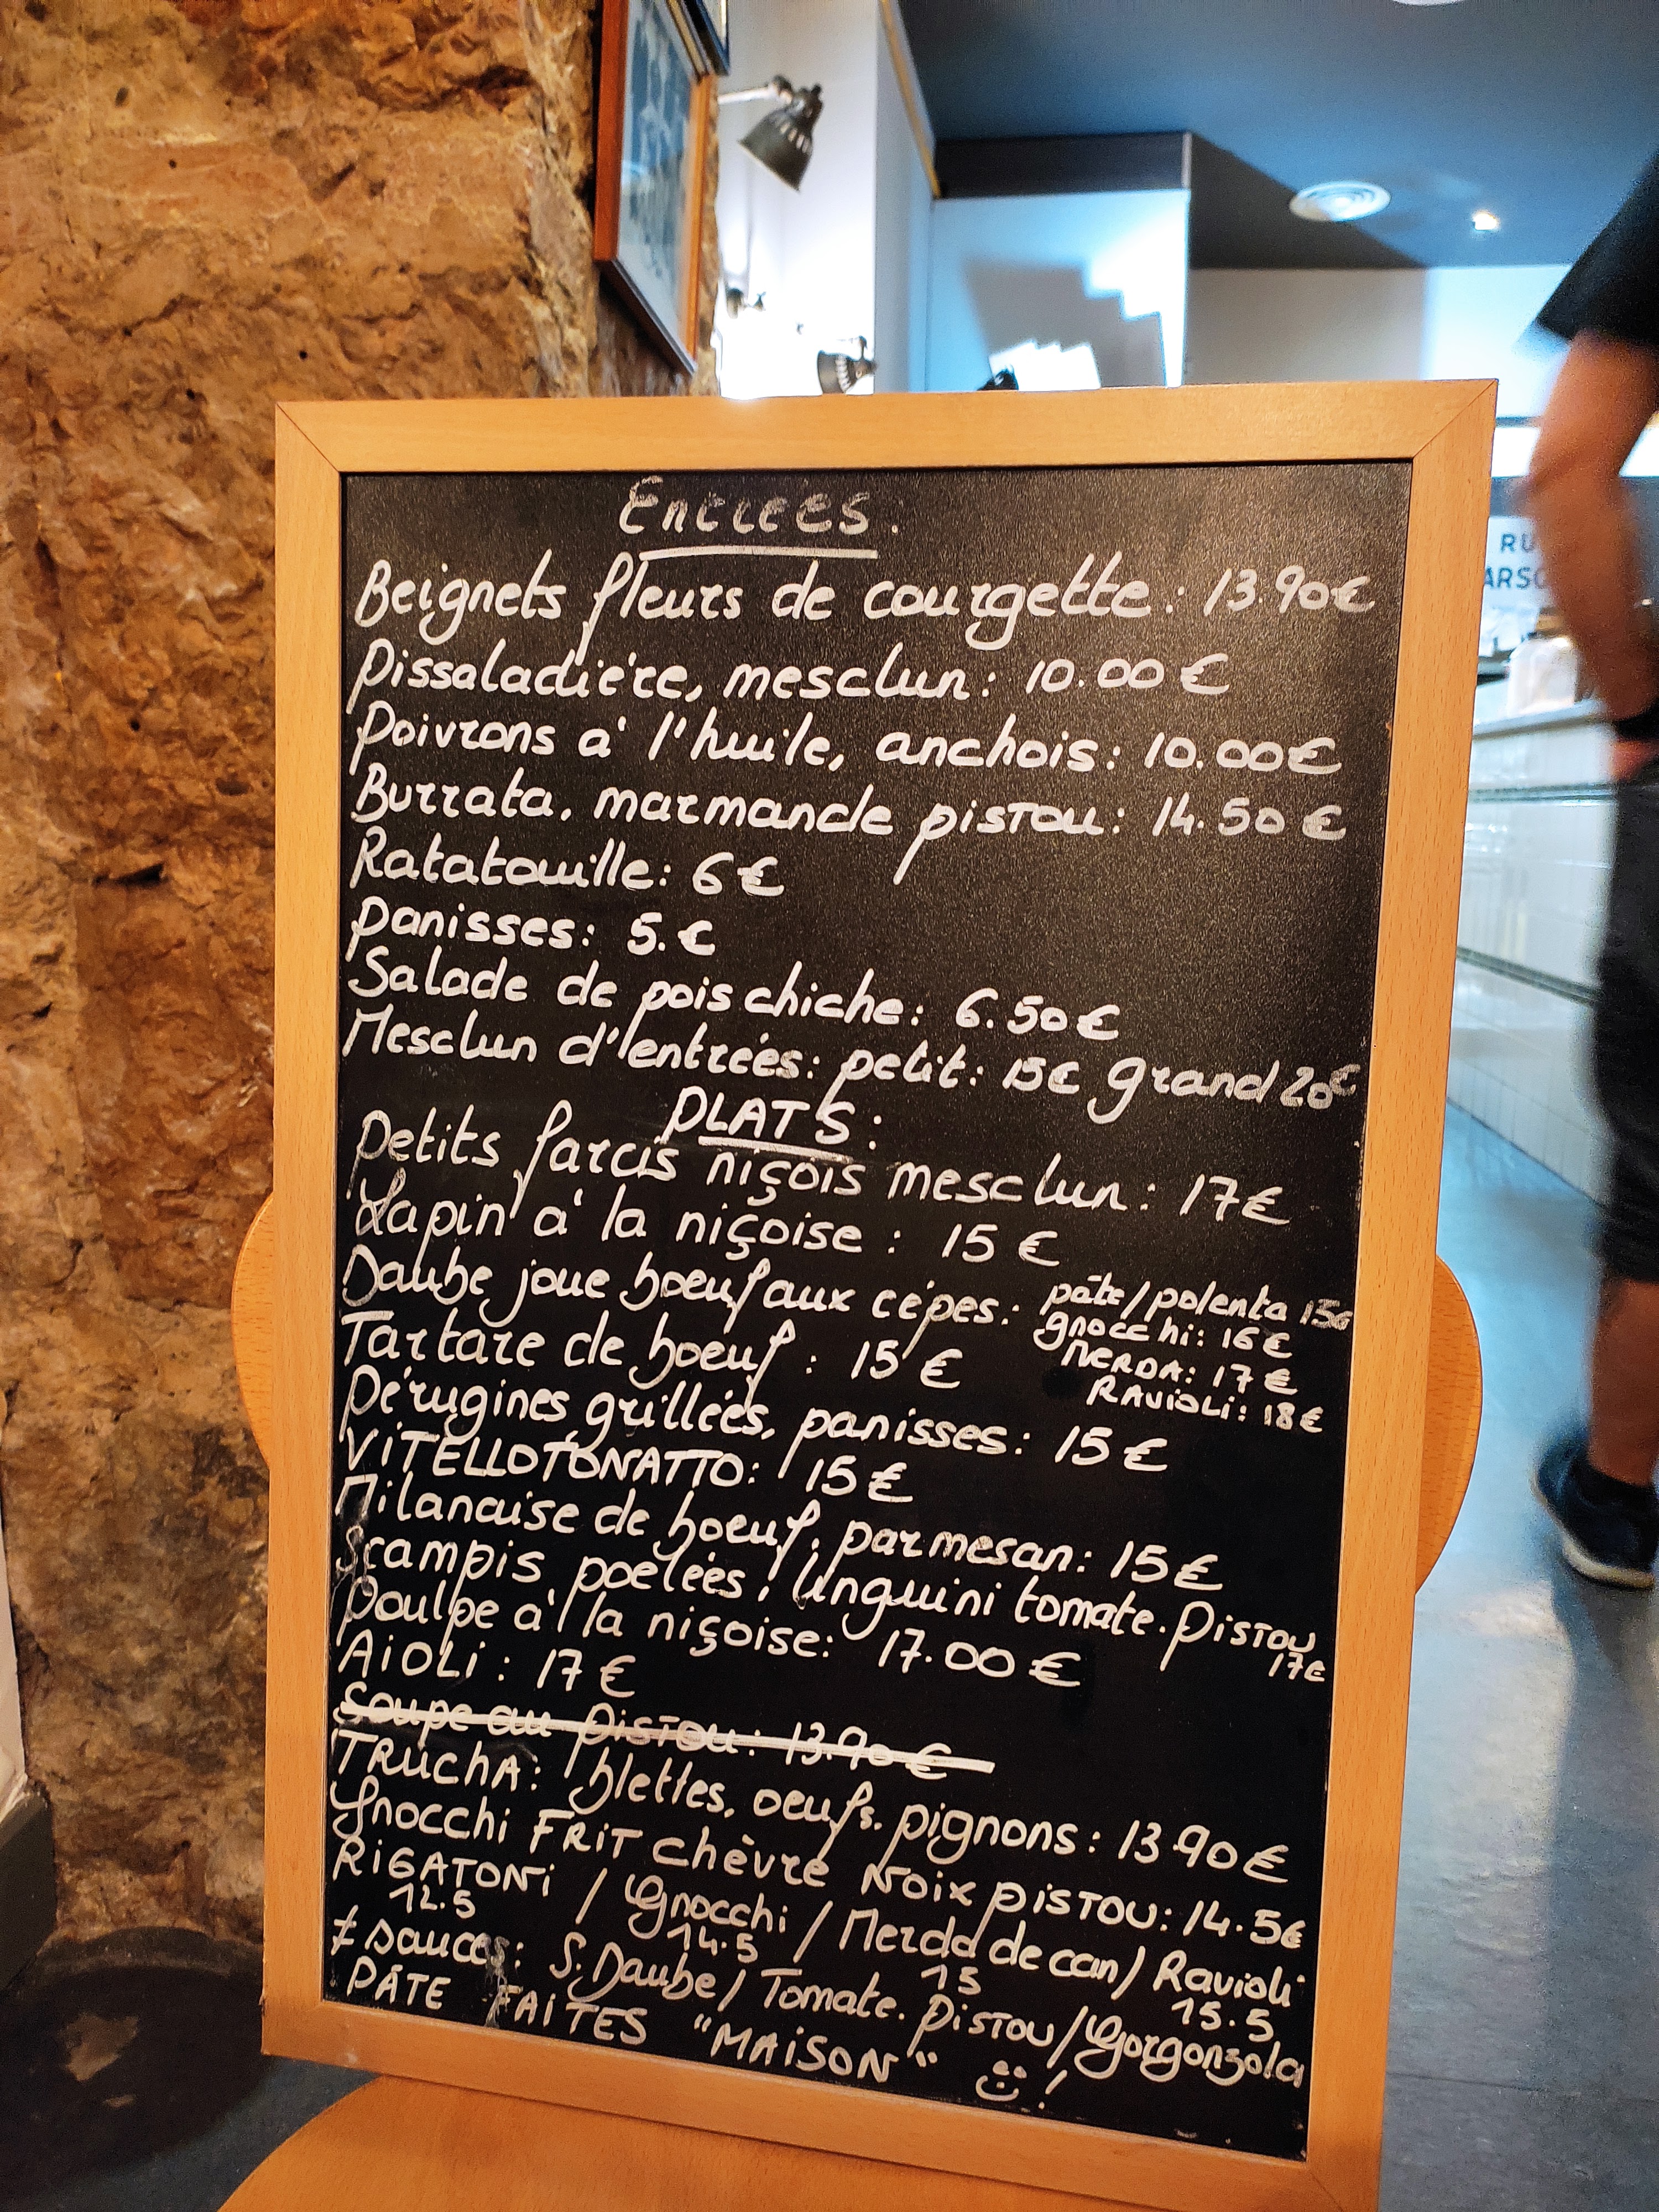 Entrées:
Beignets fleurs de courgette: 13.90€
Pissaladière, mesclun: 10.00€
Poivrons à l'huile, anchois: 10.00€
Burrata. marmande pistou: 14.50€
Ratatouille: 6€
Panisses: 5.€
Salade de pois chiche: 6.50€
Mesclun d'entrées: petit: 15€ grand 20€
PLATS:
Petits farcis niçois mesclun: 17€
Lapin à la niçoise: 15€
Daube joue boeuf aux cèpes: pâte/polenta 15€
gnocchi: 16€
MERDA: 17€
RAVIOLI: 18€
Tartare de boeuf: 15€
Pérugines grillées, panisses: 15€
VITELLOTONATTO: 15€
Milanaise de boeuf, parmesan: 15€
Scampis poêlées, linguini tomate. Pistou
17€
Poulpe à la niçoise: 17.00€
AiOLi: 17€
Soupe au Pistou: 13.90€
TRUCHA: blettes, oeufs, pignons: 13.90€
Gnocchi FRIT Chèvre Noix PISTOU: 14.5€
RIGATONI / Gnocchi / Merda de can / Ravioli
12.5 14.5 15 15.5
≠ sauces: S. Daube / Tomate. Pistou / Gorgonzola
PÂTE FAITES "MAISON" ☺!
RU
ARSO